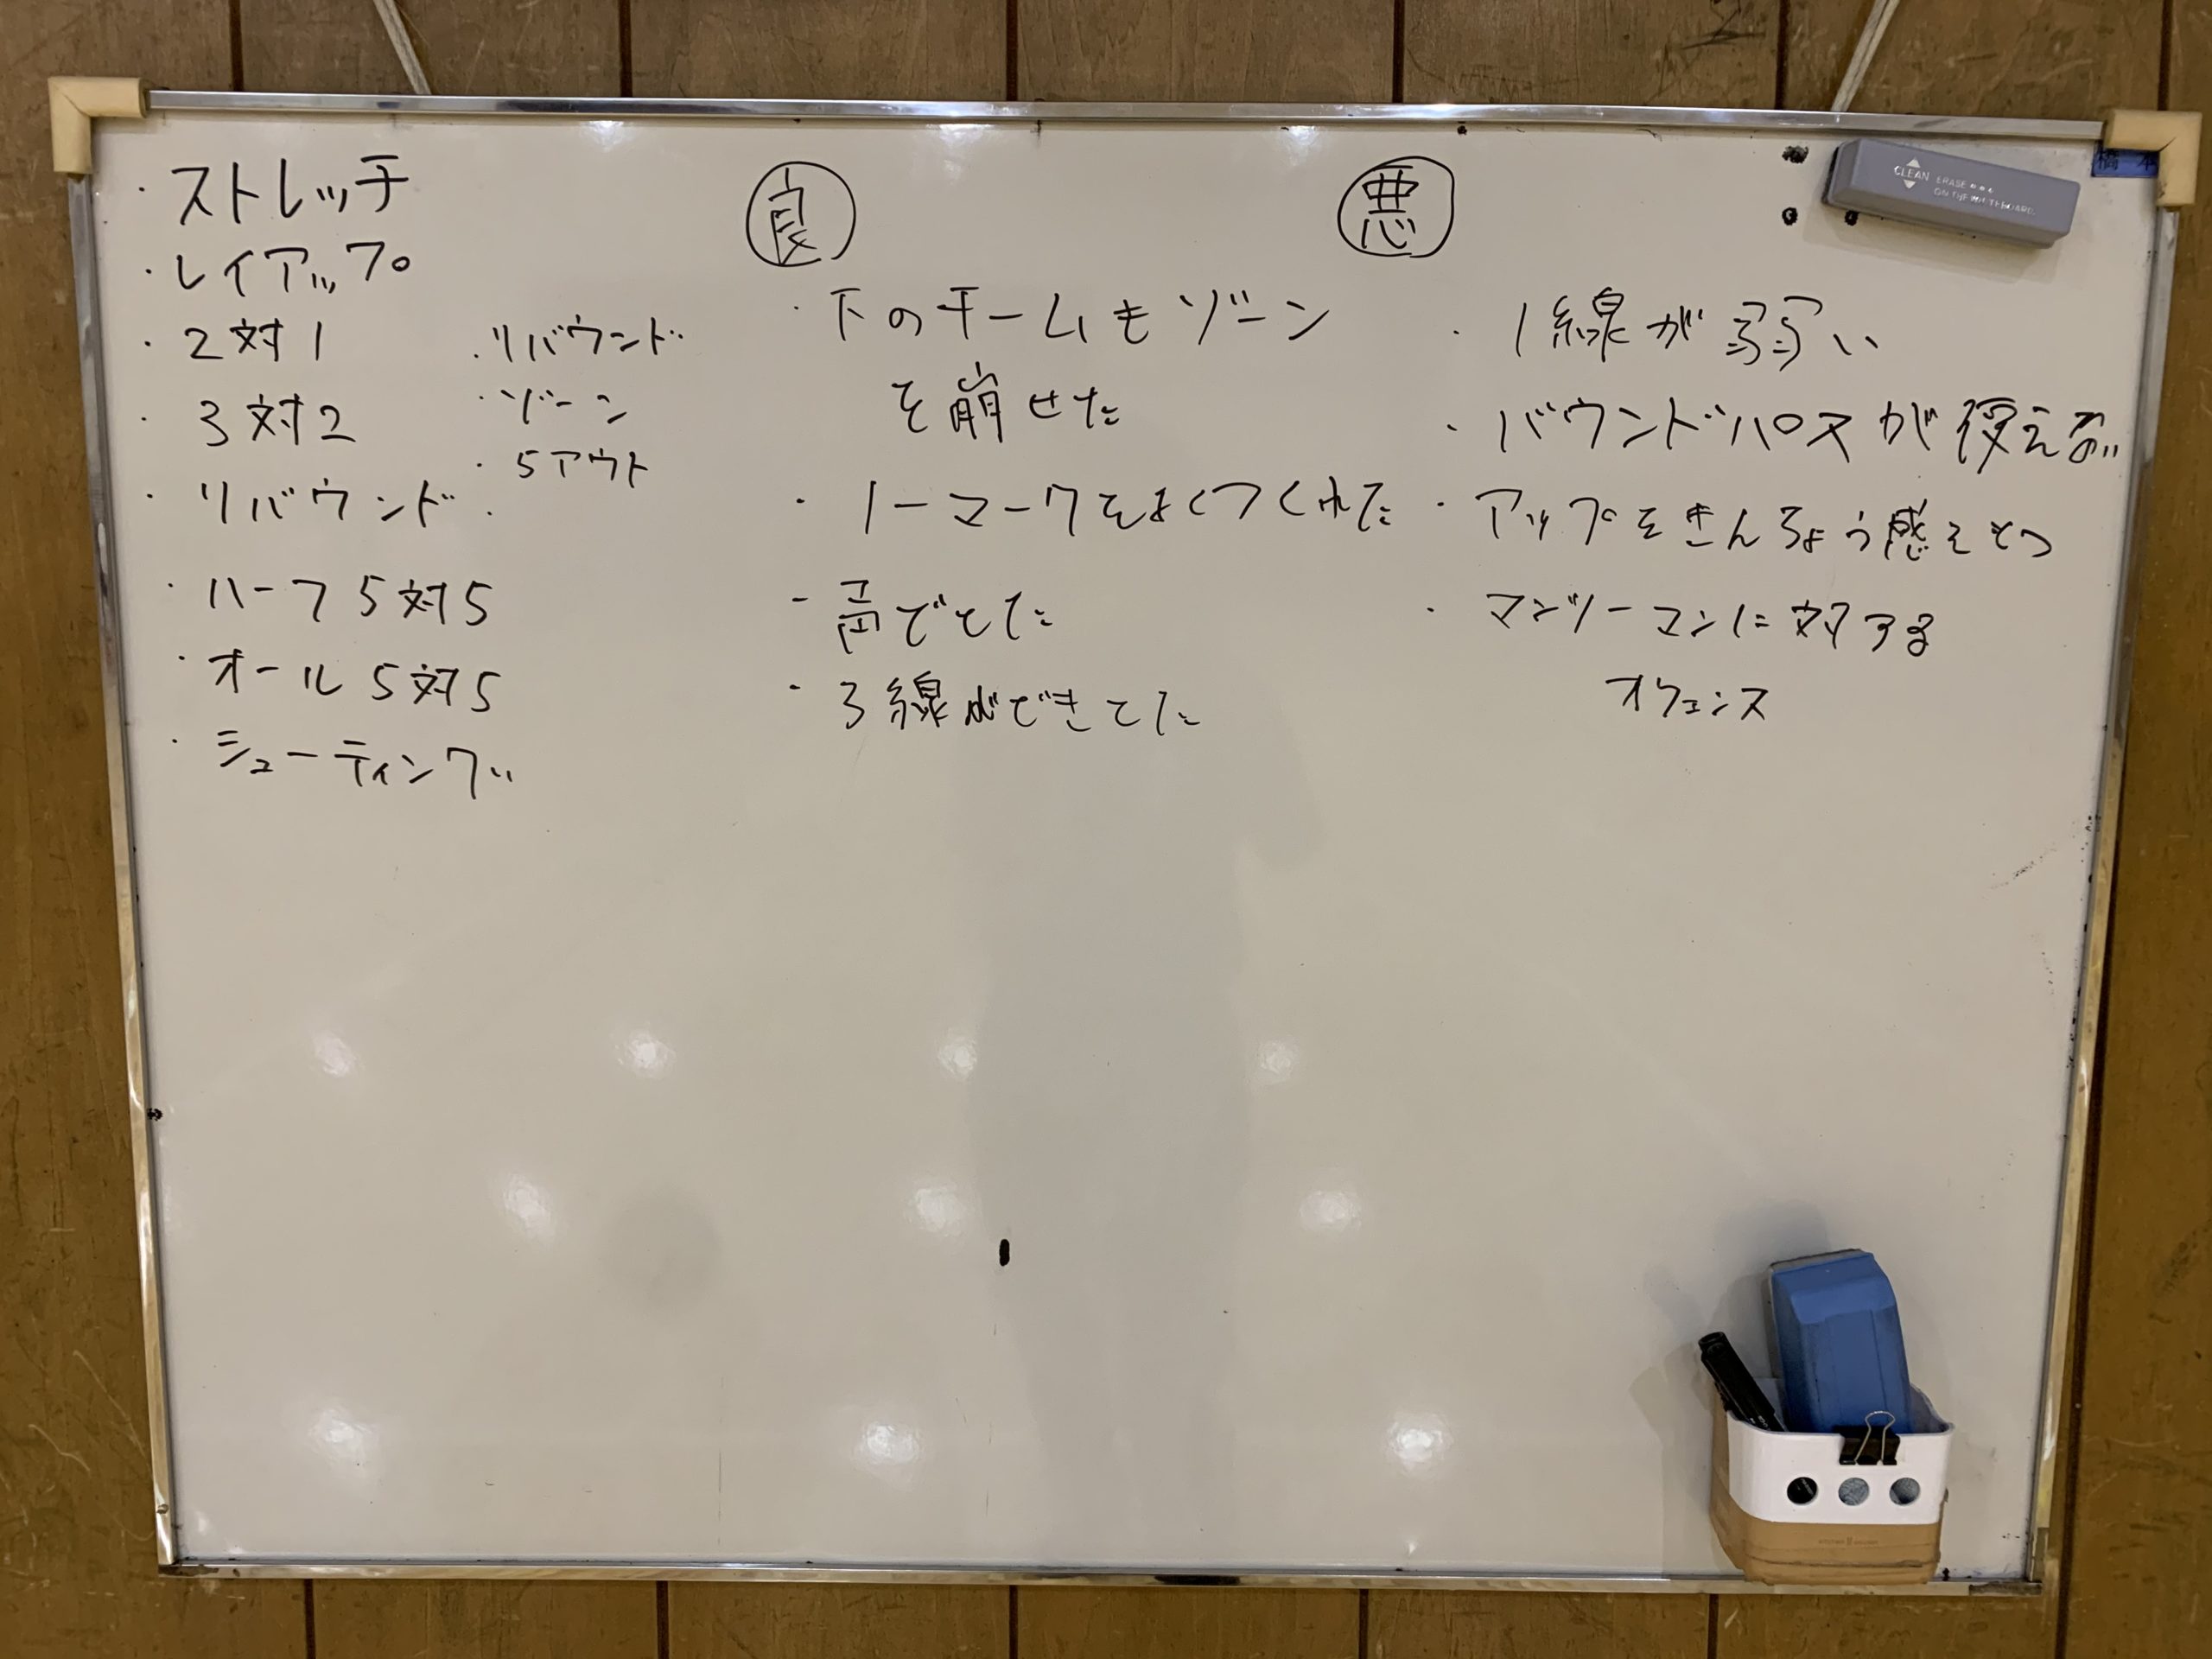 ・ストレッチ
・レイアップ
・2対1
・3対2
・リバウンド
・ハーフ5対5
・オール5対5
・シューティング
・リバウンド
・ゾーン
・5アウト
良
・下のチームもゾーン
を崩せた
・ノーマークをよくつくれた
・声でてた
・3線ができてた
悪
・1線が弱い
・バウンドパスが使える
・アップをきんちょう感をもつ
・マンツーマンに対する
オフェンス
CLEAN ERASE
ON THE WHITEBOARD.
橋本